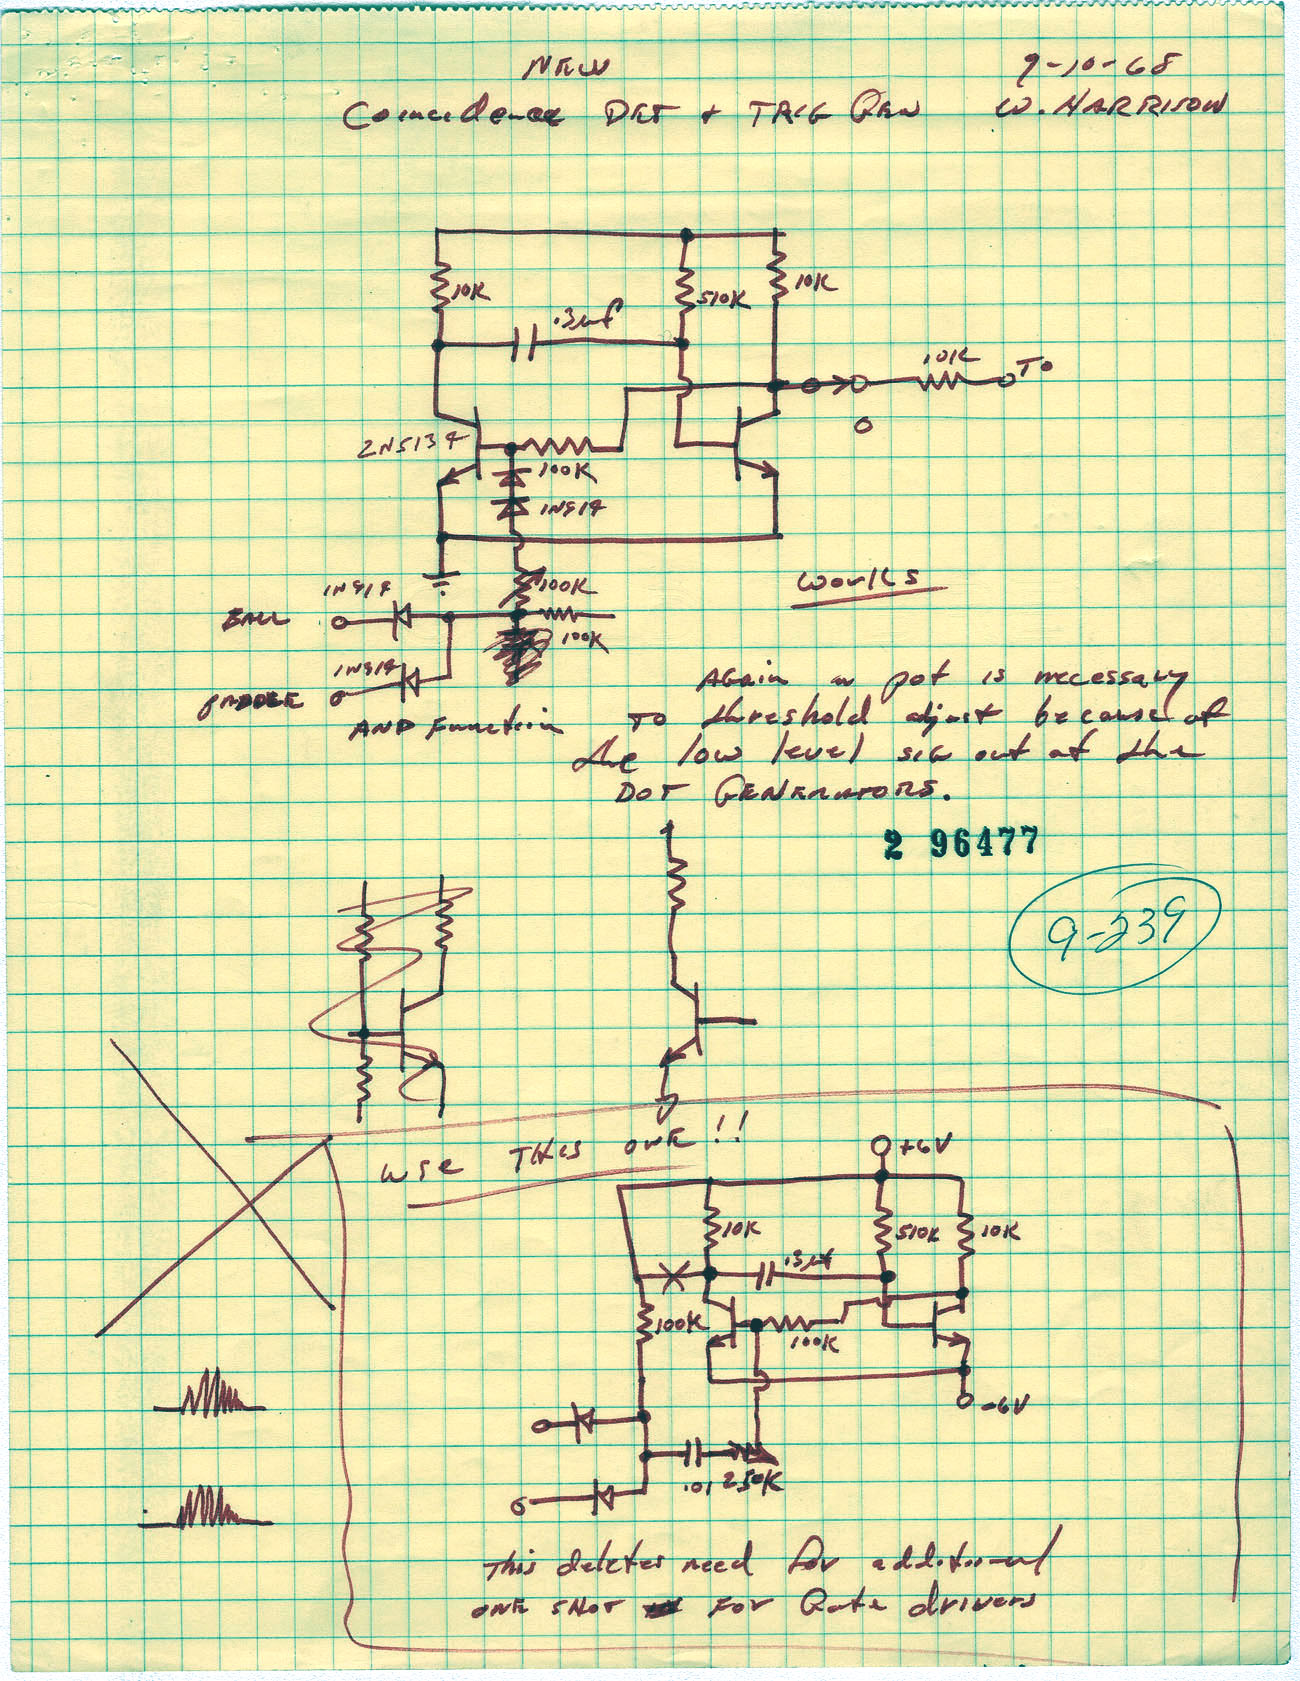 NEW 9-10-68
Coincidence DET + TRIG GEN W. HARRISON
10K
510K
10K
.3uf
10K TO
2N5134
100K
1N914
1N914
100K
BALL
100K
1N914
PADDLE
AND Function
works
AGain a pot is necessary
TO threshold adjust because of
the low level SIG out at the
DOT GENERATORS.
2 96477
9-239
USE THIS ONE !!
+6V
10K
510K
10K
.3uf
100K
100K
-6V
.01
250K
This deletes need for additional
ONE SHOT FOR Gate drivers